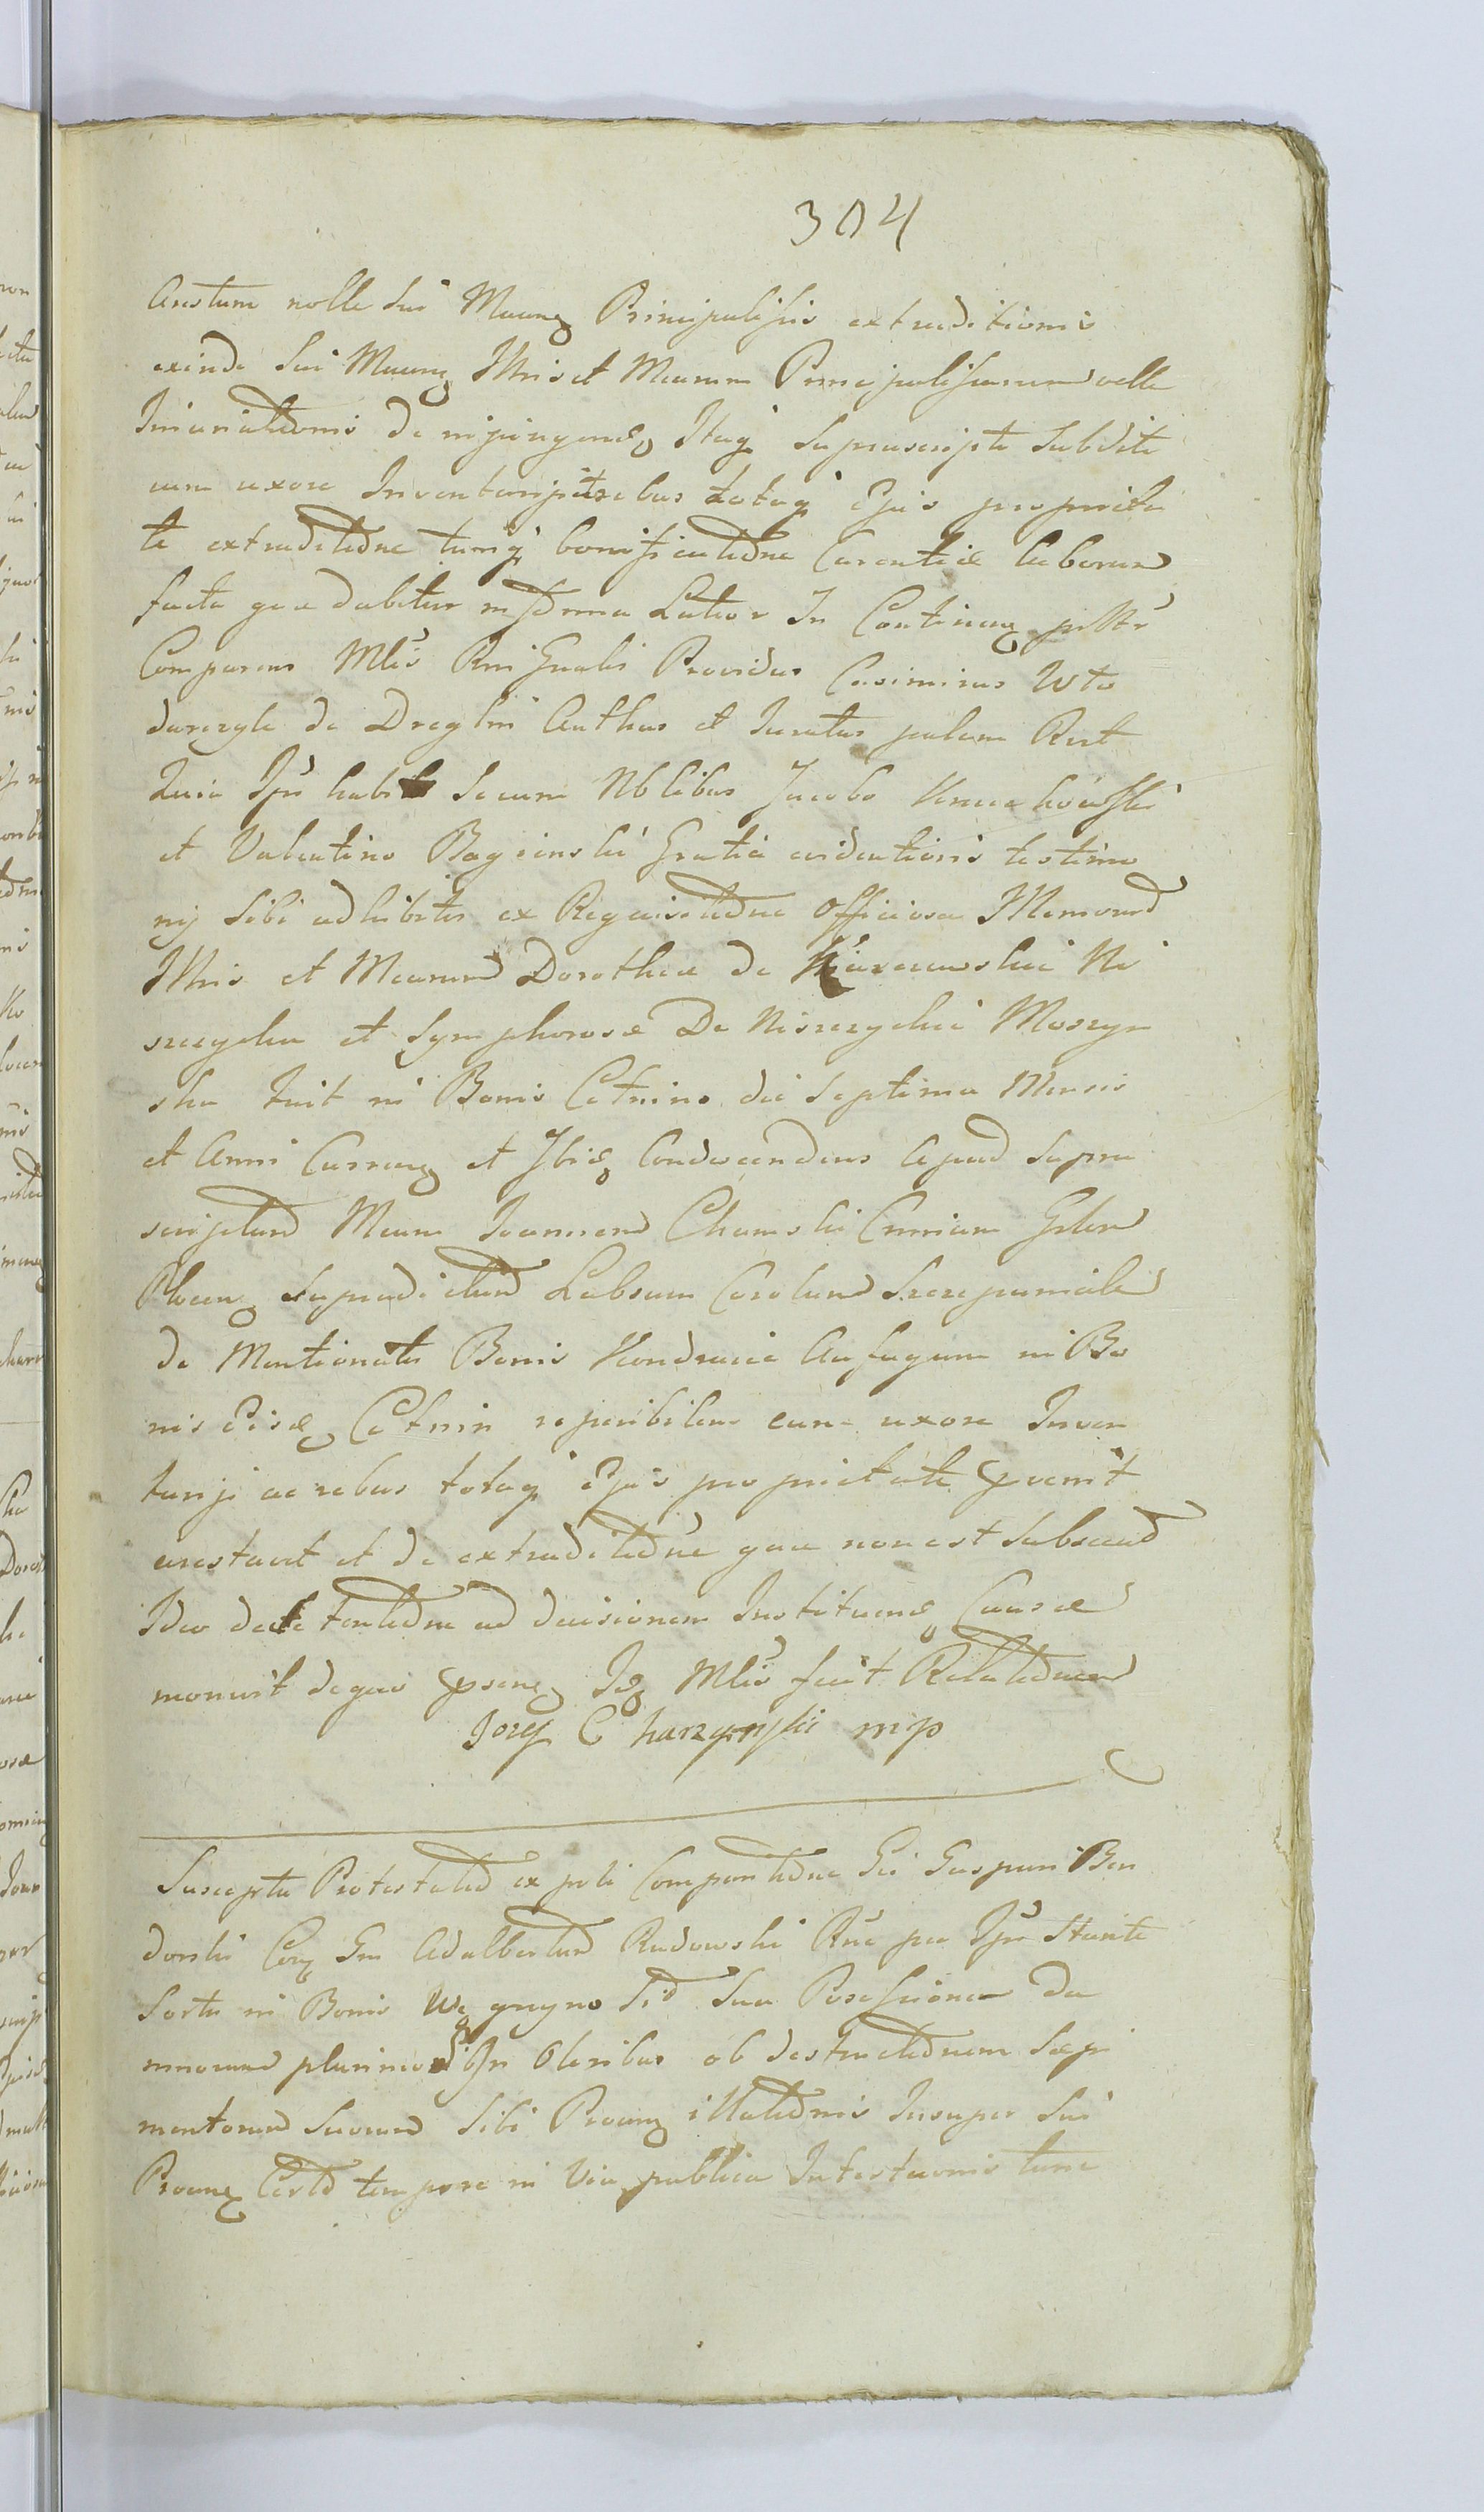 304
Arestum nolle sui Maanq Principalissis extraditionis
exinde sui Maanq Illris et Maarum Principalissarum velle
Iniuriatdnis de injungend Itaq suprascripti subditi
cum uxore Inventarijs rebus totaq Ejus proprieta
te extraditdne tumq bonificatdne Carentiae laborum
facta quae dabitur in forma Latior In Continenq
Comparens Mlis Rni Gnalis Providus Casimirus Wto
darczyk de Dreglin Authus et Iuratus palam Rect
Quia Ipse habitis secum Nblibus Jacobo
et Valentino Bagienski Gratia evidentioris testimo
nij sibi adhibitis ex Requisitdne officiosa Memorad
Illris et Maarum Dorothea de Ni
szczycka et Symphorosa De Niszczyckie Moszyn
ska fuit in Bonis Cetnino die septima Mensis
et Anni Currenq et Ibid Condescendens apud supra
scriptum Maum Joannem Chamski Camium Gelem
Plocenq supradictum Labsum Carolum Szczepaniak
de Mentionatis Bonis Kondraiec Aufugum in Bo
nis Eisd Cetnin reperibilem cum uxore Inven
tarijs ac rebus totaq Ejus proprietate pvenit
arestavit et de extraditdne quae non est subsecud
Ideo de detentatdne ad decisionem Instituend Causae
monuit de quo psenq Isq Mlis fecit Relatdnem
Jozef Charzynski mp
Suscepta Protestatd ex psli Comparitdne Gsi Gaspari Ben
dorski Conq Gm Adalbertum Rudowski Rne pa Ipse stante
Sorte in Bonis Węgrzyno sid sua Possessione da
mnorum plurimord In Oleribus ob destructdnem saepi
mentorum suorum sibi Proanq illatdnis Insuper sui
Proanq Certo tempore in Via publica Infestaonis tunc